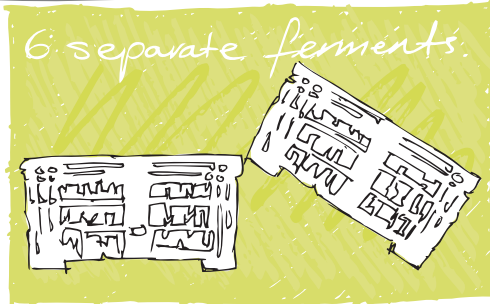 6 separate ferments.